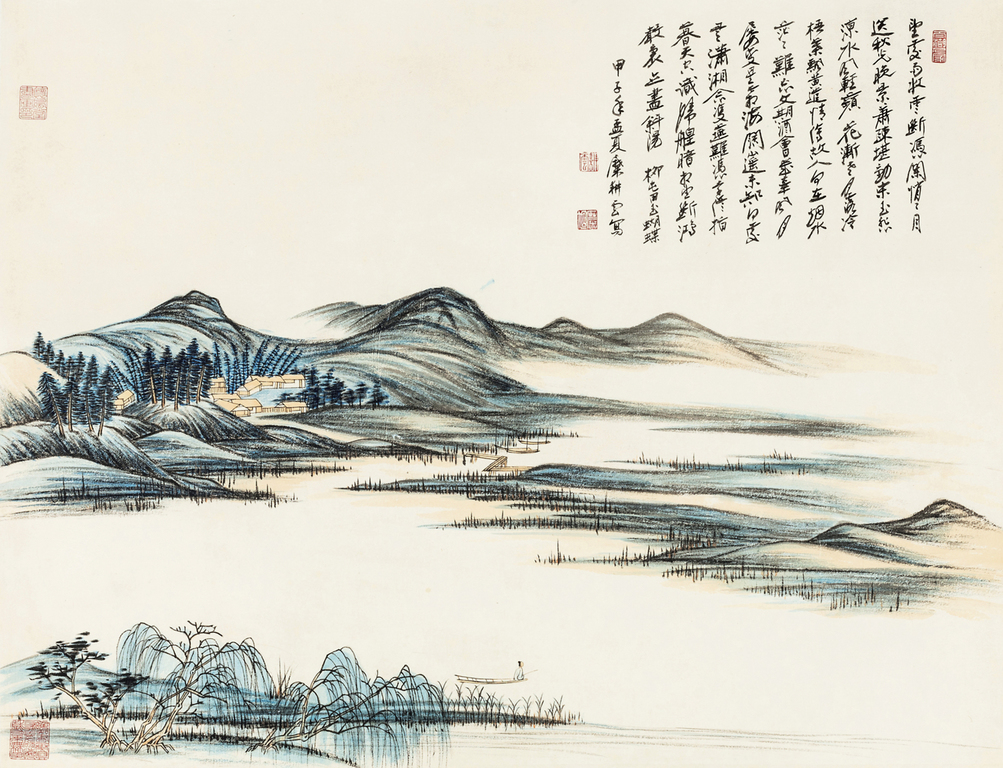 望處雨收雲斷憑闌悄々目
送秋光晚景蕭疎堪動宋玉悲
涼水風輕蘋花漸老月露冷
梧葉飄黃遣情傷故人何在烟水
茫々難忘文期酒會幾辜風月
屢變星霜海闊山遙未知何處
是瀟湘念雙燕難憑遠信指
暮天空識歸艎暗相望斷鴻
聲裏立盡斜陽 柳屯田玉蝴蝶
甲子年孟夏糜耕雲寫